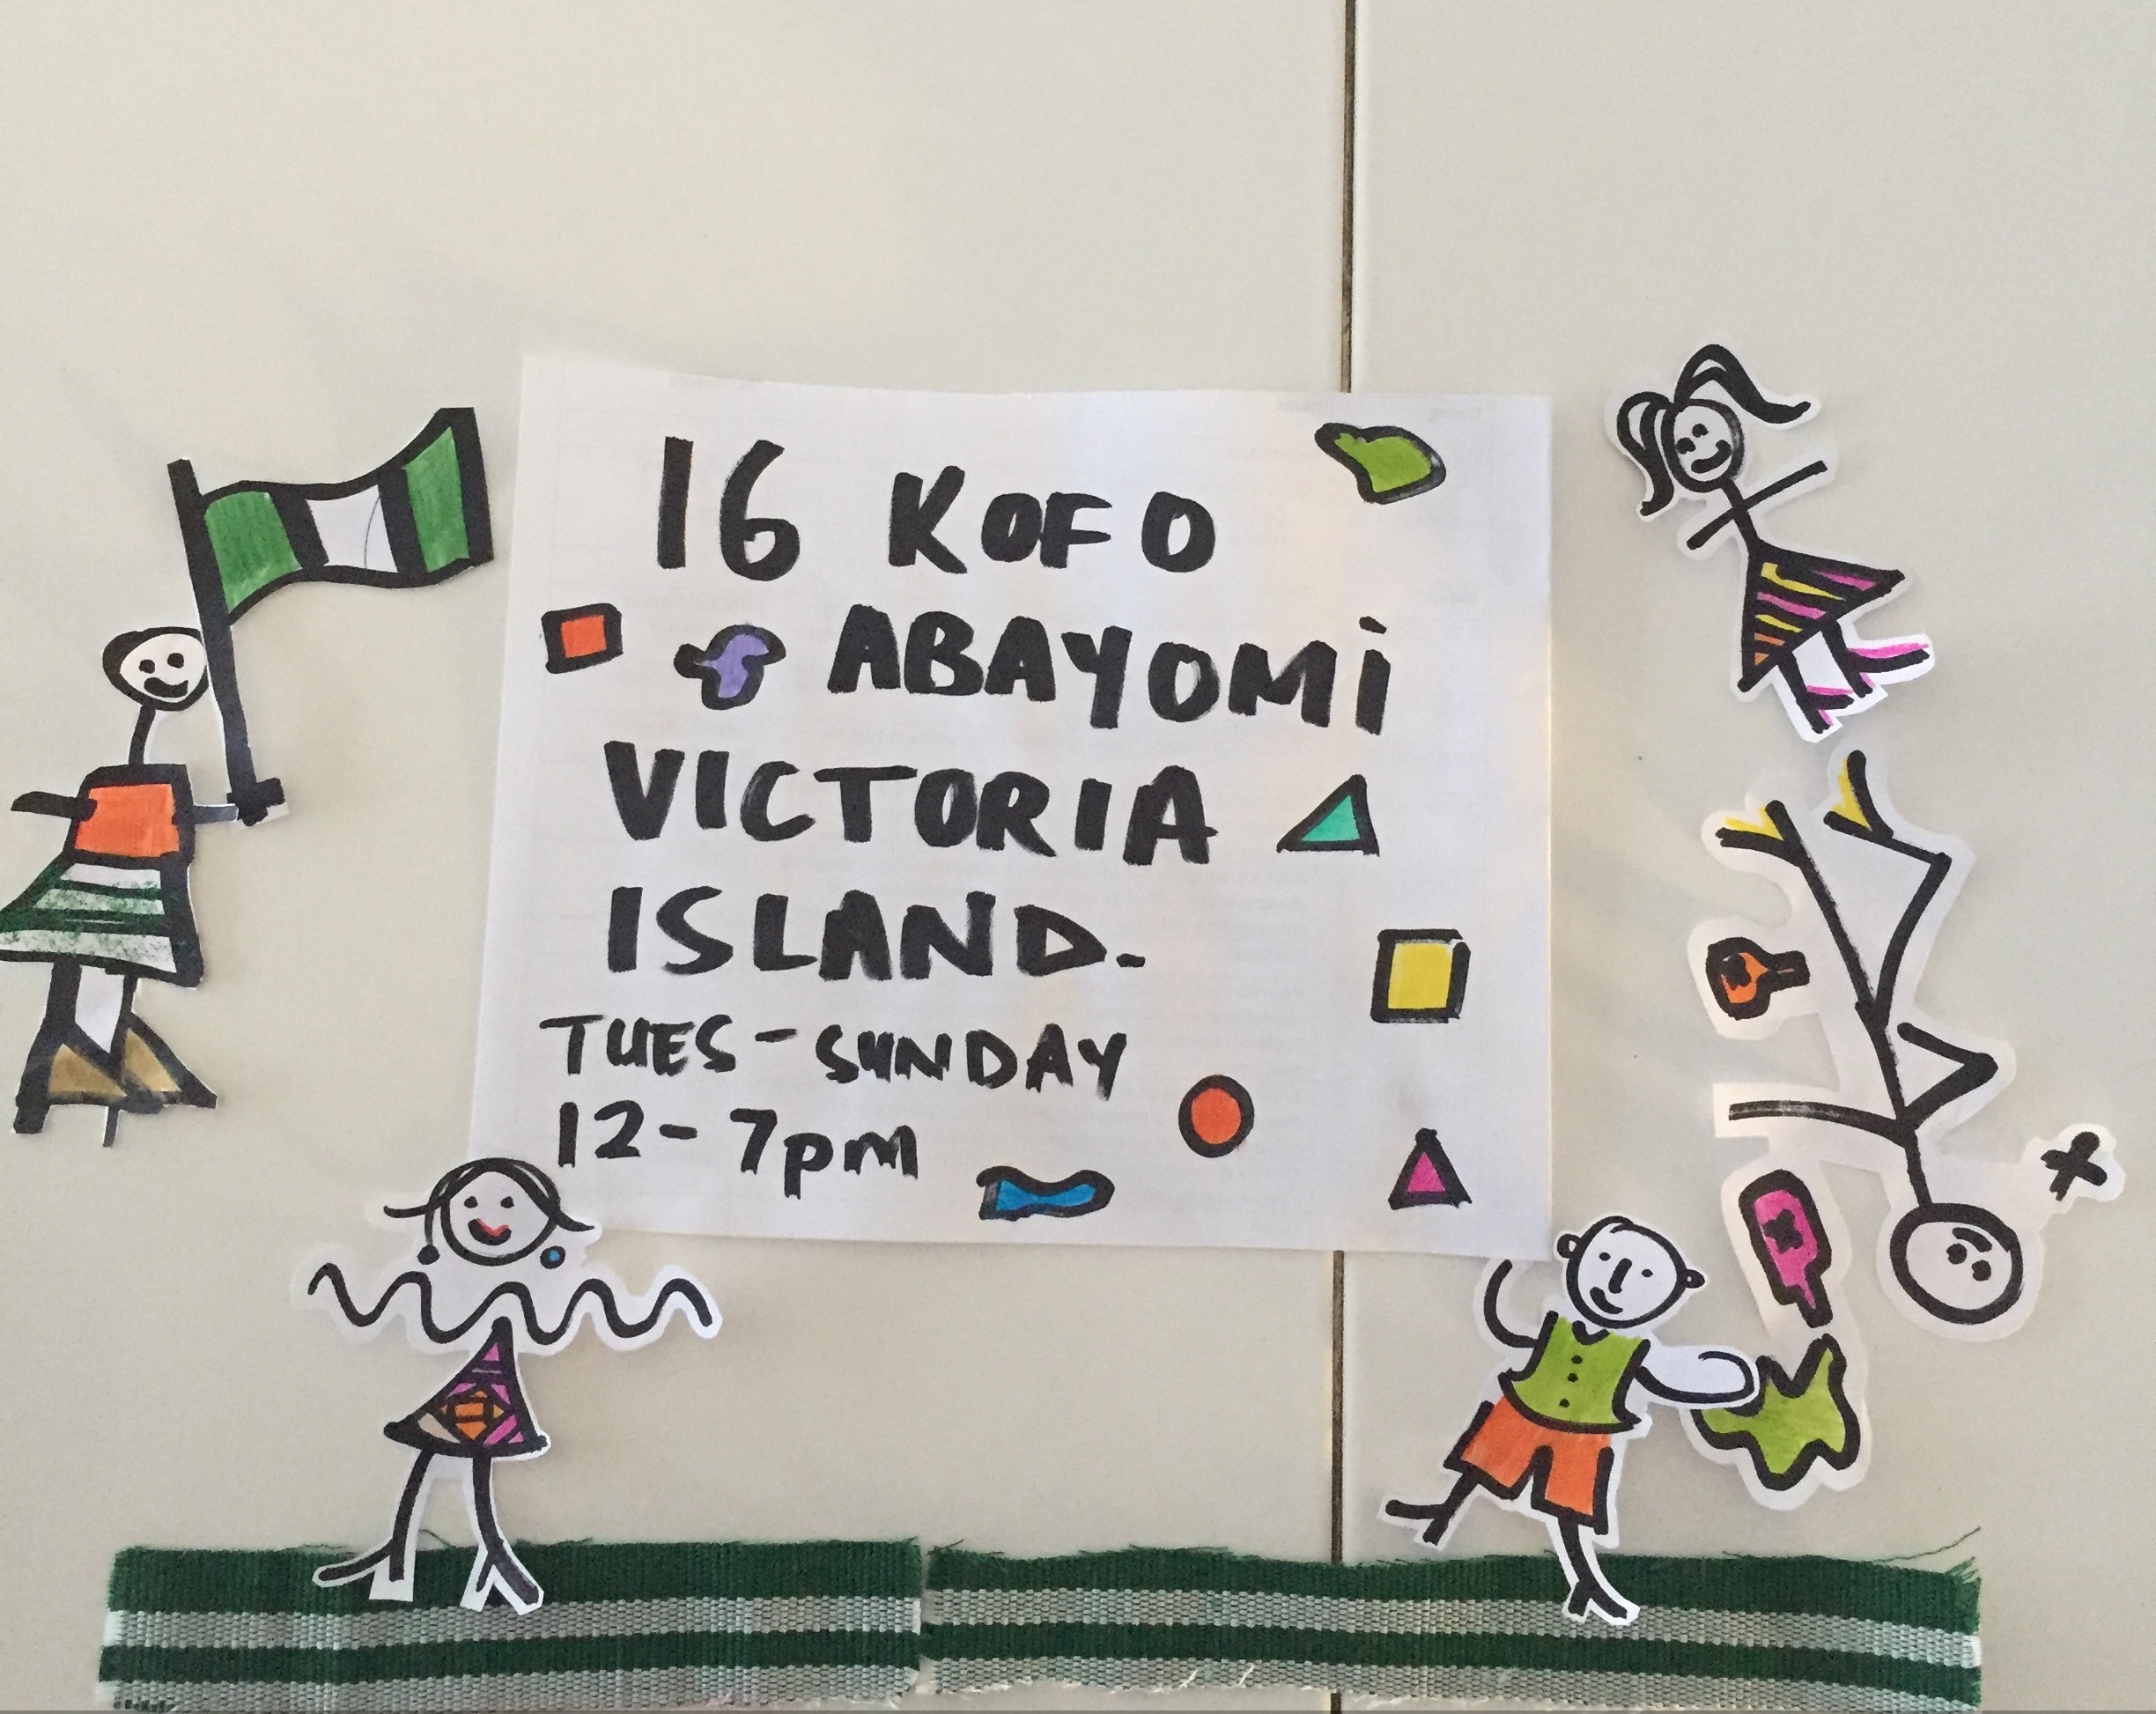 16 KOFO
ABAYOMi
VICTORIA
ISLAND.
TUES - SUNDAY
12 - 7pm